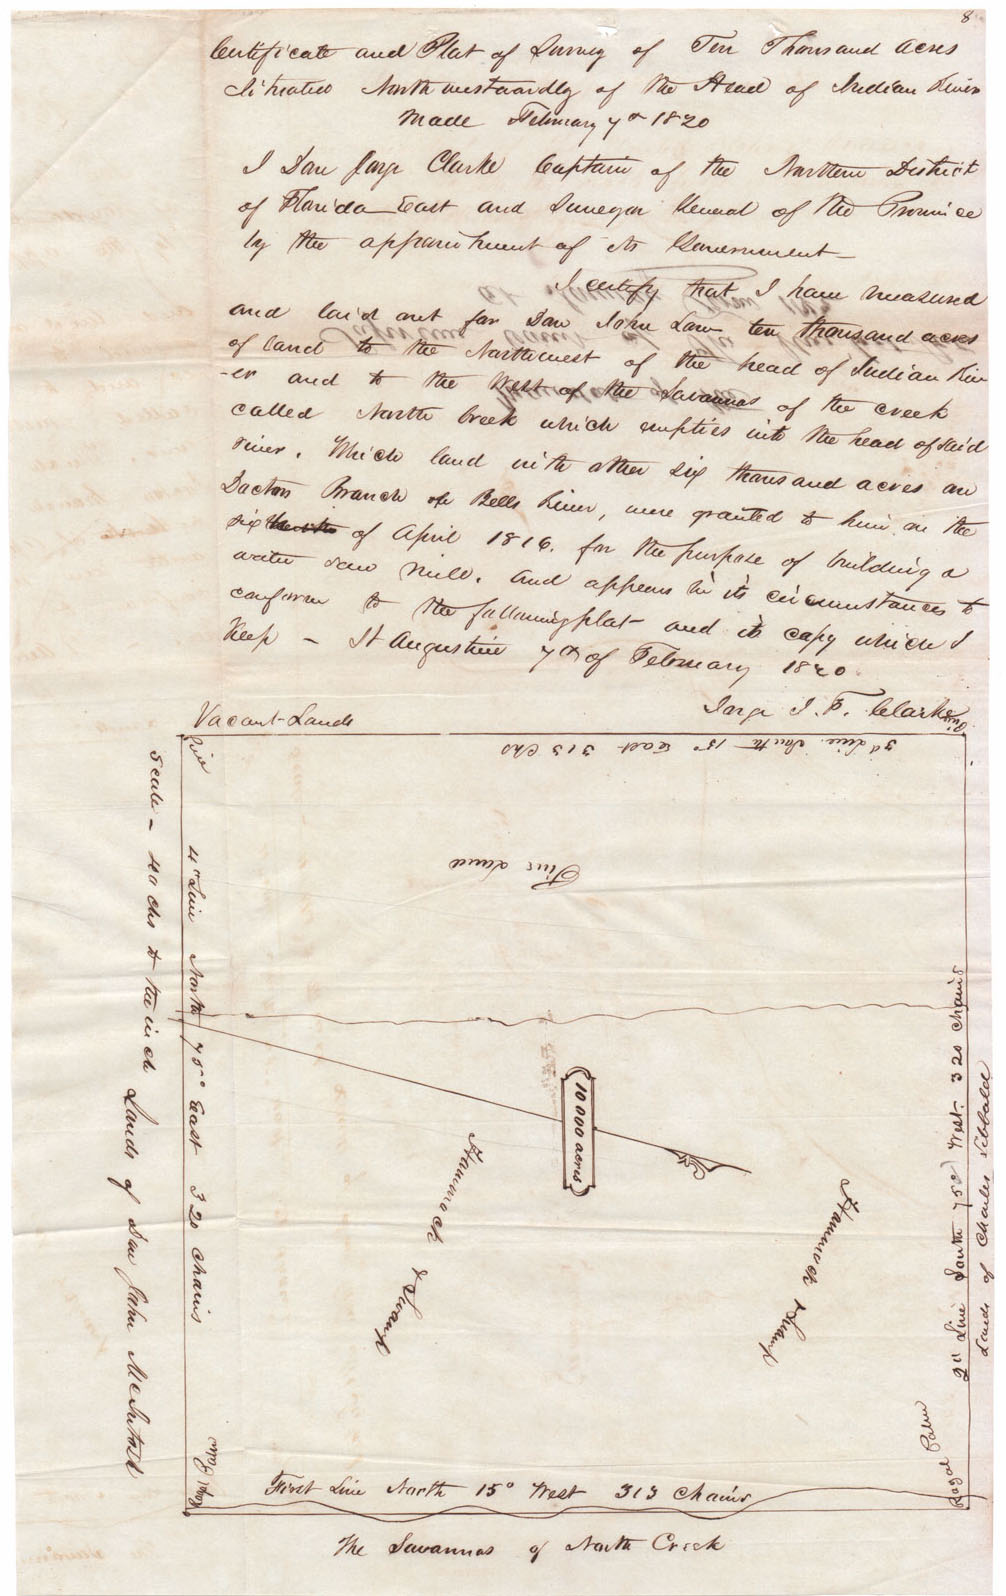 8
Certificate and Plat of Survey of Ten Thousand acres
Situated Northwestwardly of the Head of Indian River
Made February 7th 1820
I Don Jorge Clarke Captain of the Northern District
of Florida East and Surveyor General of the Province
by the appointment of its Government
I certify that I have measured
and laid out for Don John Low ten thousand acres
of land to the Northwest of the head of Indian Riv
-er and to the West of the Savannas of the creek
called North Creek which empties into the head of said
river. Which land with other six thousand acres on
Doctors Branch Bells River, were granted to him on the
six of April 1816. for the purpose of building a
water saw mill. and appears in its circumstances to
conform to the following plat and its copy which I
Keep – St Augustine 7th of February 1820.
Jorge J. F. Clarke
Vacant Lands
Pine
Pine
3d Line South 15° East 313 Chs
Pine Land
Scale – 40 chs to the inch
Lands of Don John McIntosh
4th Line North 75° East 320 chains
10 000 acres
Hammock & Swamp
Hammock & Swamp
2d Line South 75° West. 320 chains
Lands of Charles Sibbald
Royal Palm
Royal Palm
First Line North 15° West 313 Chains
The Savannas of North Creek